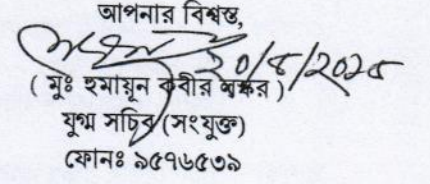 আপনার বিশ্বস্ত,
২০/৪/২০২৫
( মুঃ হুমায়ূন কবীর লস্কর )
যুগ্ম সচিব (সংযুক্ত)
ফোনঃ ৯৫৭৬৫৩৯